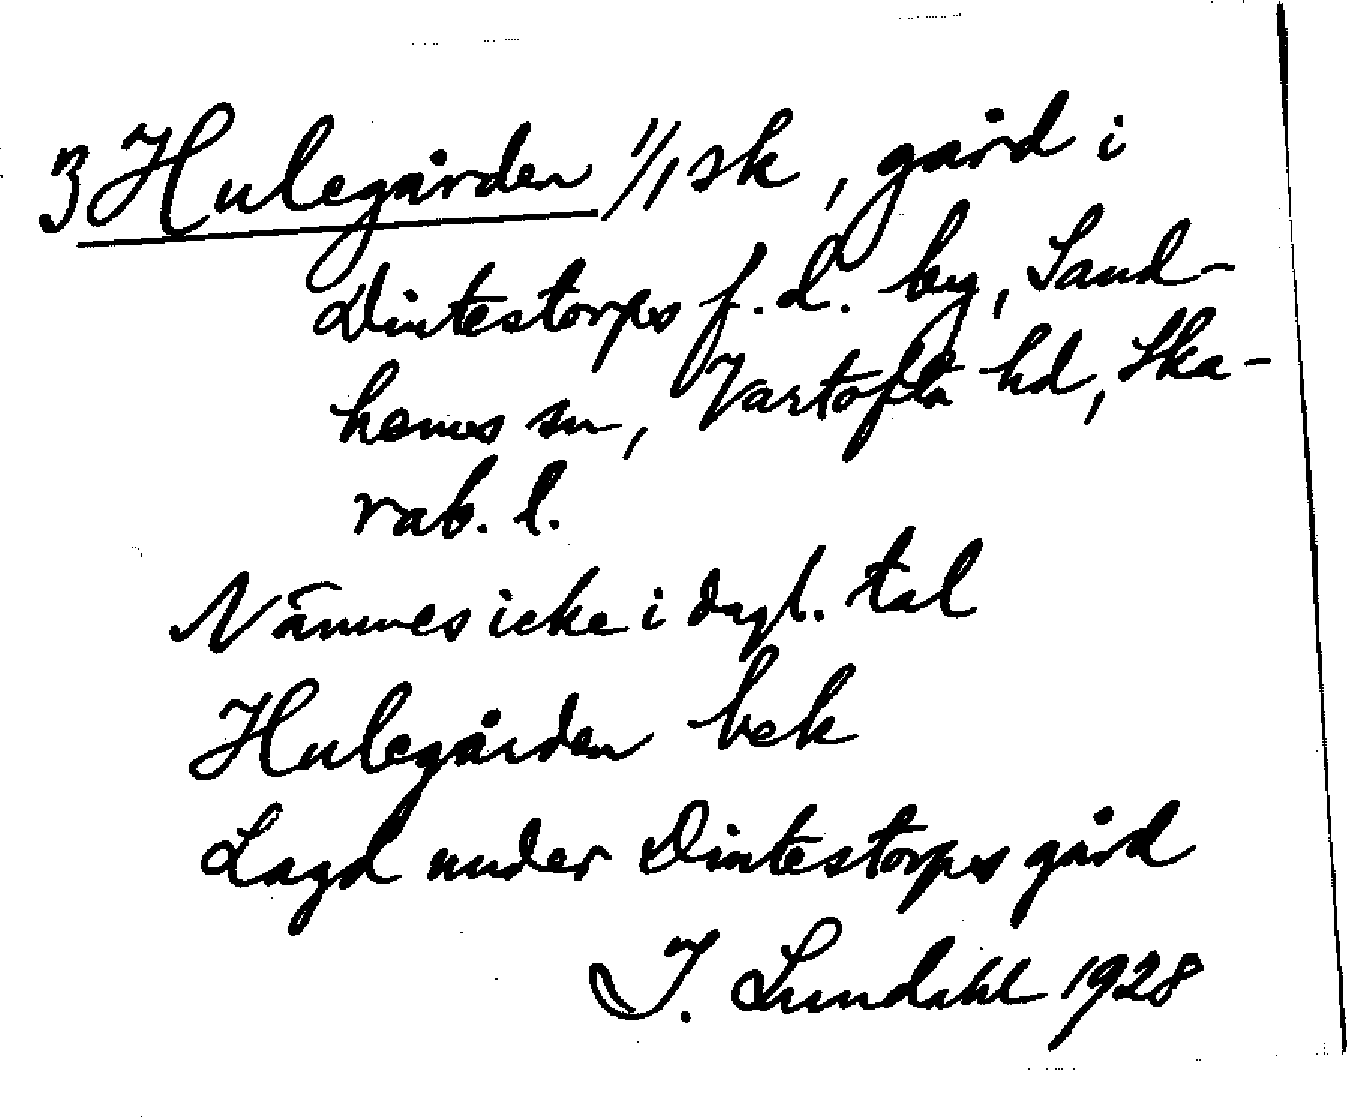 3 Hulegården 1/1 sk, gård i
Dintestorps f.d. by, Sand-
hems sn, Vartofta hd, Ska-
rab. l.
Nämnes icke i dagl. tal
Hulegården bek
Lagd under Dintestorps gård
I. Lundahl 1928